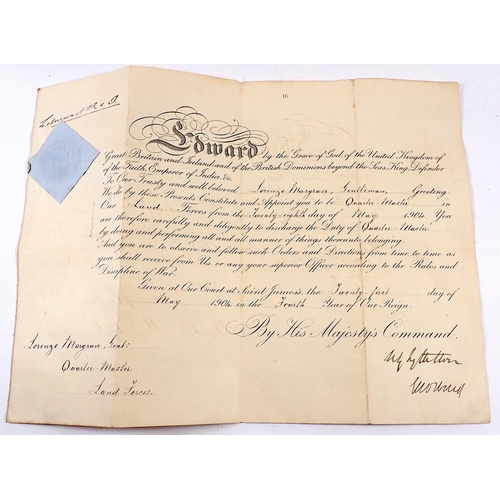 16
Edward by the Grace of God, of the United Kingdom of
Great Britain and Ireland, and of the British Dominions beyond the Seas King, Defender
of the Faith, Emperor of India, &c.
To Our Trusty and well-beloved Lorenzo Margrave, Gentleman, Greeting.
We do by these Presents Constitute and Appoint you to be Quarter Master in
Our Land Forces from the Twenty eighth day of May 1904. You
are therefore carefully and diligently to discharge the Duty of Quarter Master
by doing and performing all and all manner of things thereunto belonging.
And you are to observe and follow such Orders and Directions from time to time as
you shall receive from Us or any your superior Officer according to the Rules and
Discipline of War.
Given at Our Court at Saint James's, the Twenty-first day of
May 1904, in the Fourth Year of Our Reign.
By His Majesty's Command.
Lorenzo Margrave, Gent:
Quarter-Master
Land Forces.